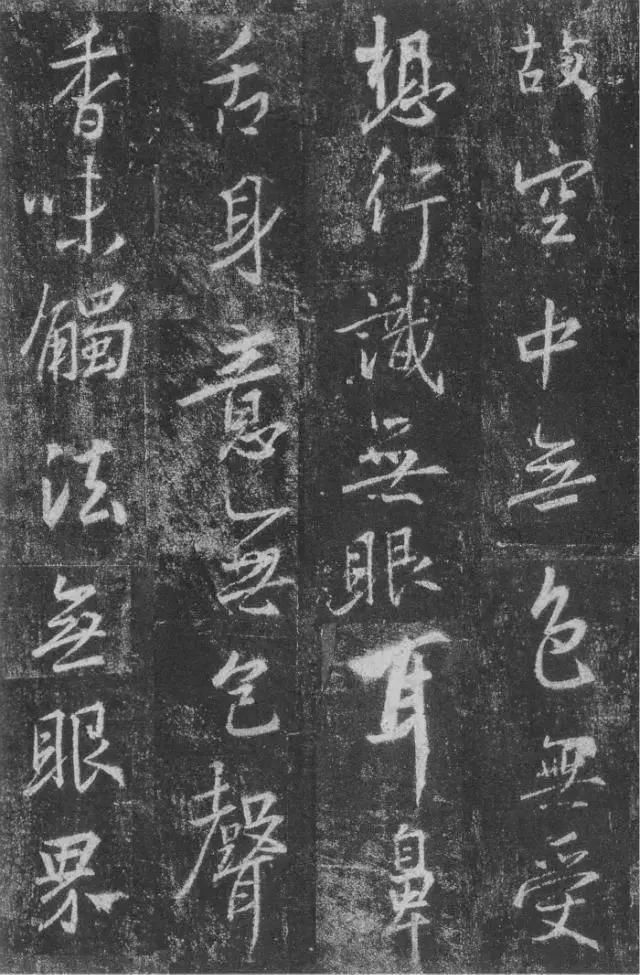 故空中無色無受
想行識無眼耳鼻
舌身意無色聲
香味觸法無眼界